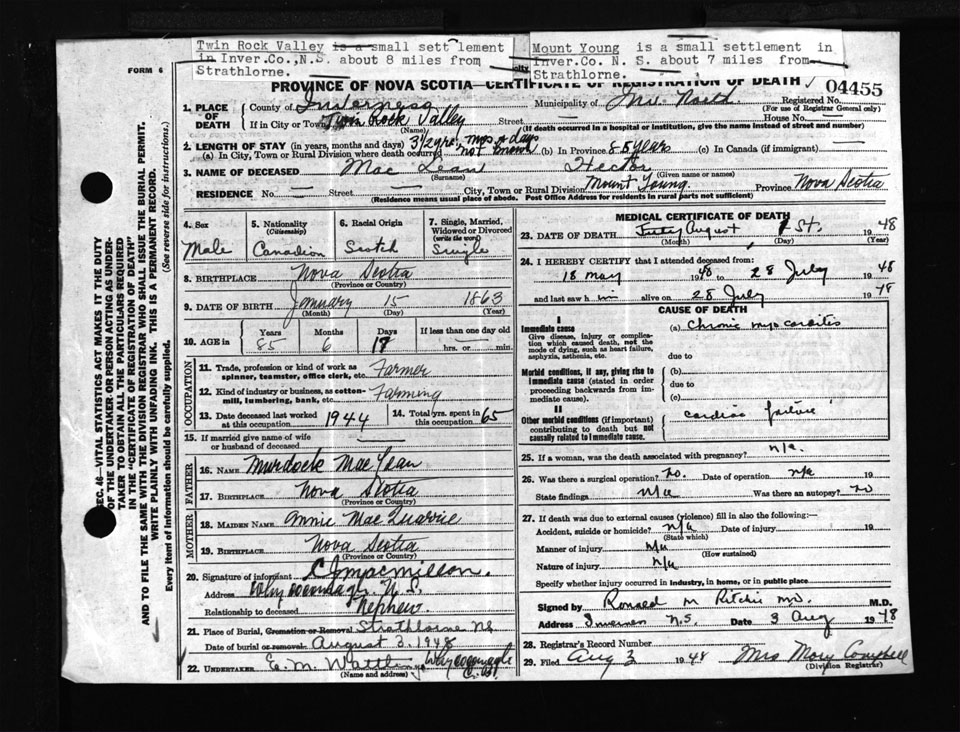 Twin Rock Valley is a small settlement
in Inver.Co.,N.S. about 8 miles from
Strathlorne.
Mount Young is a small settlement in
Inver.Co. N. S. about 7 miles from
Strathlorne.
FORM 6
PROVINCE OF NOVA SCOTIA—CERTIFICATE OF REGISTRATION OF DEATH
04455
1. PLACE OF DEATH County of Inverness Municipality of Inv. North Registered No. (For use of Registrar General only)
If in City or Town Twin Rock Valley (Name) House No.
(If death occurred in a hospital or institution, give the name instead of street and number)
2. LENGTH OF STAY (in years, months and days)
(a) In City, Town or Rural Division where death occurred 3 1/2 yrs, mos & days not known (b) In Province 85 years (c) In Canada (if immigrant)
3. NAME OF DECEASED Mac Lean (Surname) Hector (Given name or names)
RESIDENCE No. Street City, Town or Rural Division Mount Young Province Nova Scotia
(Residence means usual place of abode. Post Office Address for residents in rural parts not sufficient)
4. Sex Male
5. Nationality (Citizenship) Canadian
6. Racial Origin Scotch
7. Single, Married, Widowed or Divorced (write the word) Single
8. BIRTHPLACE Nova Scotia
(Province or Country)
9. DATE OF BIRTH January 15 1863
(Month) (Day) (Year)
10. AGE in Years 85 Months 6 Days 17 If less than one day old hrs. or min.
OCCUPATION
11. Trade, profession or kind of work as spinner, teamster, office clerk, etc. Farmer
12. Kind of industry or business, as cotton-mill, lumbering, bank, etc. Farming
13. Date deceased last worked at this occupation 1944
14. Total yrs. spent in this occupation 65
15. If married give name of wife or husband of deceased
FATHER
16. NAME Murdock Mac Lean
17. BIRTHPLACE Nova Scotia
(Province or Country)
MOTHER
18. MAIDEN NAME Annie Mac Quarrie
19. BIRTHPLACE Nova Scotia
(Province or Country)
20. Signature of informant C J Macmillan.
Address Whycocomagh N.S.
Relationship to deceased Nephew
21. Place of Burial, Cremation or Removal Strathlorne NS
Date of burial or removal August 3, 1948
22. UNDERTAKER E. M. Wattling Whycocomagh C.B.
(Name and address)
MEDICAL CERTIFICATE OF DEATH
23. DATE OF DEATH July August 1 St. 1948
(Month) (Day) (Year)
24. I HEREBY CERTIFY that I attended deceased from:
18 May 1948 to 28 July 1948
and last saw him alive on 28 July 1948
CAUSE OF DEATH
I
Immediate cause
Give disease, injury or complication which caused death, not the mode of dying, such as heart failure, asphyxia, asthenia, etc.
(a) Chronic myocarditis
due to
Morbid conditions, if any, giving rise to immediate cause (stated in order proceeding backwards from immediate cause).
(b)
due to
(c)
II
Other morbid conditions (if important) contributing to death but not causally related to immediate cause.
cardiac failure
25. If a woman, was the death associated with pregnancy? n/a.
26. Was there a surgical operation? No. Date of operation n/a 19
State findings n/a Was there an autopsy? No
27. If death was due to external causes (violence) fill in also the following:—
Accident, suicide or homicide? n/a Date of injury 19
(State which)
Manner of injury n/a
(How sustained)
Nature of injury n/a
Specify whether injury occurred in industry, in home, or in public place
Signed by Ronald M Ritchie MD. M.D.
Address Inverness N.S. Date 3 Aug 1948
28. Registrar's Record Number
29. Filed Aug 3 1948 Mrs Mary Campbell
(Division Registrar)
SEC. 46—VITAL STATISTICS ACT MAKES IT THE DUTY
OF THE UNDERTAKER OR PERSON ACTING AS UNDERTAKER
TO OBTAIN ALL THE PARTICULARS REQUIRED
IN THE "CERTIFICATE OF REGISTRATION OF DEATH"
AND TO FILE THE SAME WITH THE DIVISION REGISTRAR WHO SHALL ISSUE THE BURIAL PERMIT.
WRITE PLAINLY WITH UNFADING INK. THIS IS A PERMANENT RECORD.
Every item of Information should be carefully supplied. (See reverse side for instructions.)